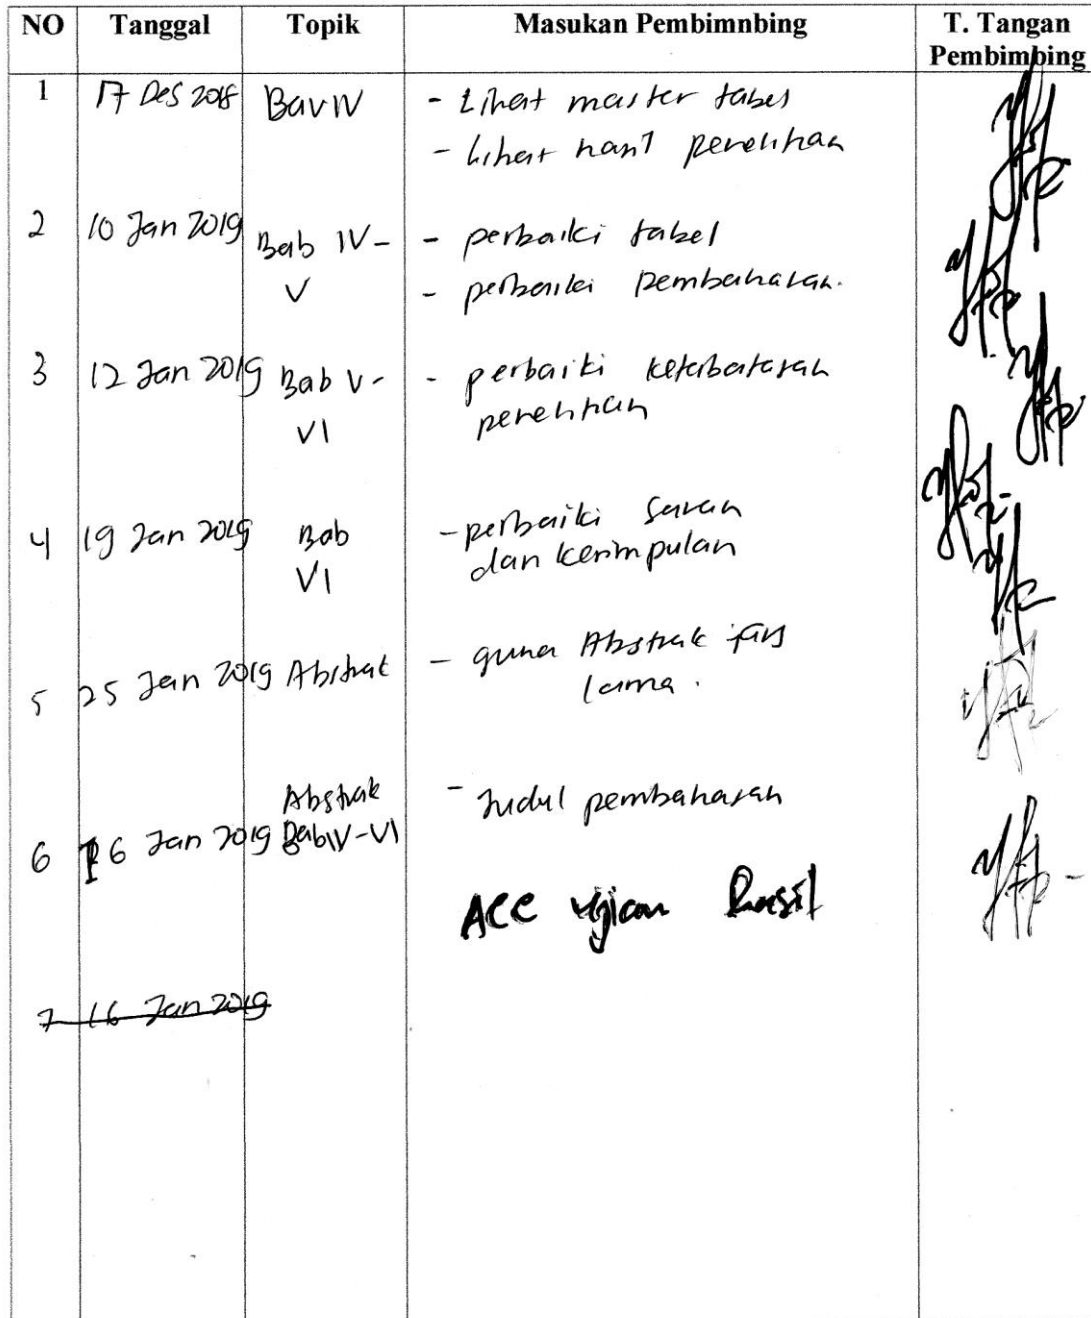 NO Tanggal Topik Masukan Pembimnbing T. Tangan
Pembimbing
1 17 Des 2018 Bav IV - Lihat master tabel
- Lihat hasil penelitian
2 10 Jan 2019 Bab IV- - perbaiki tabel
V - perbaiki pembahasan.
3 12 Jan 2019 Bab V- - perbaiki keterbatasan
VI penelitian
4 19 Jan 2019 Bab - perbaiki saran
VI dan kesimpulan
5 25 Jan 2019 Abstrak - guna Abstrak
lama.
Abstrak - Judul pembahasan
6 26 Jan 2019 Bab IV-VI
ACC ujian hasil
7 16 Jan 2019